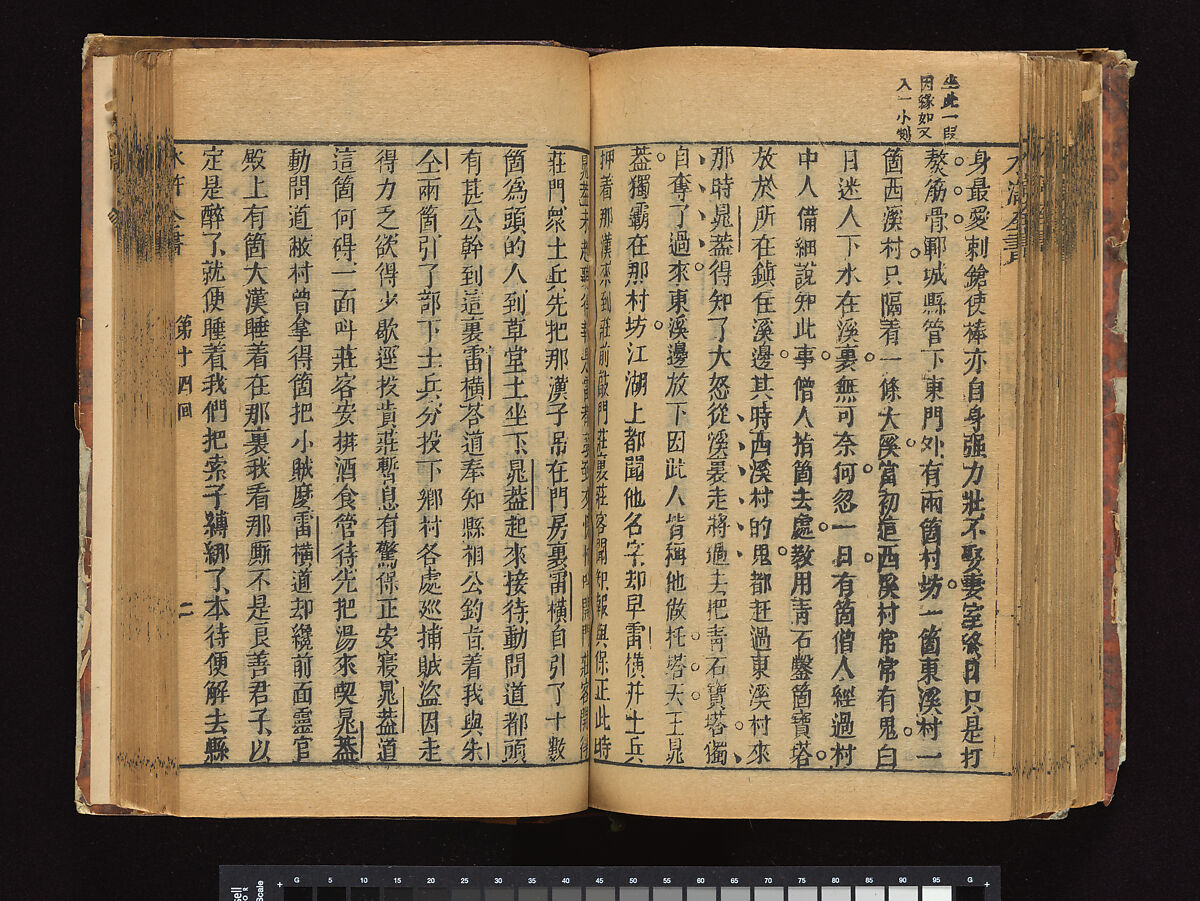 坐此一段
因緣如又
入一小刻
水滸全書
身最愛刺鎗使棒亦自身强力壯不娶妻室終日只是打
熬筋骨鄆城縣管下東門外有兩箇村坊一箇東溪村一
箇西溪村只隔着一條大溪當初這西溪村常常有鬼白
日迷人下水在溪裏無可奈何忽一日有箇僧人經過村
中人備細說知此事僧人指箇去處教用靑石鑿箇寶塔
放於所在鎮住溪邊其時西溪村的鬼都赶過東溪村來
那時晁葢得知了大怒從溪裏走將過去把靑石寶塔獨
自奪了過來東溪邊放下因此人皆稱他做托塔天王晁
葢獨霸在那村坊江湖上都聞他名字却早雷橫并土兵
押着那漢來到莊前敲門莊裏莊客聞知報與保正此時
晁葢未起聽得報是雷都頭到來慌忙叫開門莊客開得
莊門衆土兵先把那漢子吊在門房裏雷橫自引了十數
箇爲頭的人到草堂上坐下晁葢起來接待動問道都頭
有甚公幹到這裏雷橫荅道奉知縣相公鈞旨着我與朱
仝兩箇引了部下土兵分投下鄉村各處廵捕賊盗因走
得力乏欲得少歇逕投貴莊暫息有驚保正安寢晁葢道
這箇何碍一面呌莊客安排酒食管待先把湯來喫晁葢
動問道敝村曾拿得箇把小賊麽雷橫道却纔前面靈官
殿上有箇大漢睡着在那裏我看那厮不是良善君子以
定是醉了就便睡着我們把索子縛綁了本待便解去縣
水滸全書
第十四囬
二